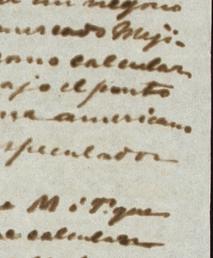 un negocio
mercado Meji-
como calcular
bajo el punto
americano
especulador
e M é Y. que
e calcular